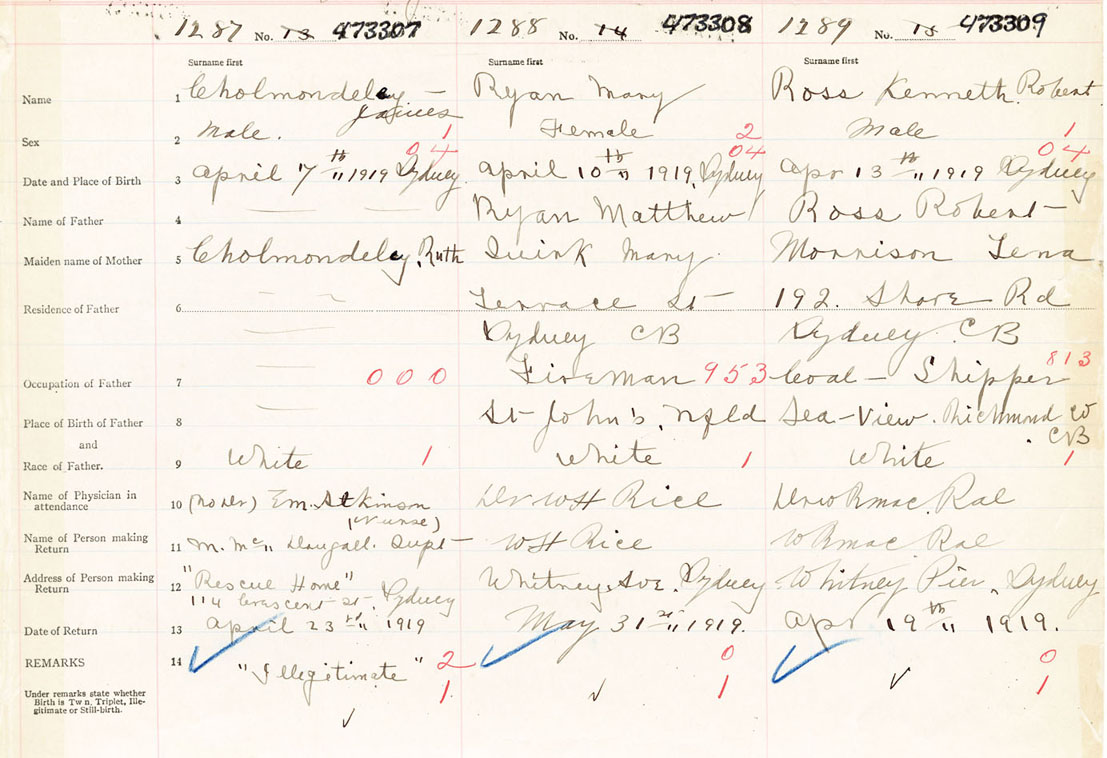 1287 No. 13 473307 1288 No. 14 473308 1289 No. 15 473309
Surname first Surname first Surname first
Name 1 Cholmondeley - Ryan Mary Ross Kenneth Robert
James
Sex 2 Male. 1 Female 2 Male 1
04 04 04
Date and Place of Birth 3 April 7th " 1919 Sydney April 10th " 1919, Sydney Apr 13th " 1919 Sydney
Name of Father 4 — — Ryan Matthew Ross Robert
Maiden name of Mother 5 Cholmondeley, Ruth Quirk Mary Morrison Lena
Residence of Father 6 — — Terrace St 192. Shore Rd
— Sydney CB Sydney. CB
Occupation of Father 7 — 000 Fireman 953 Coal - Shipper 813
Place of Birth of Father 8 — St John's, Nfld Sea-View. Richmond Co
and CB
Race of Father. 9 White 1 White 1 White 1
Name of Physician in
attendance 10 (no Dr) Em. Atkinson Dr WH Rice Dr W R Mac. Rae
(Nurse)
Name of Person making
Return 11 M. Mc" Dougall. Supt WH Rice W R Mac. Rae
Address of Person making
Return 12 "Rescue Home" Whitney Ave. Sydney Whitney Pier, Sydney
114 Crescent St. Sydney
Date of Return 13 April 23rd " 1919 May 31st " 1919. Apr 19th " 1919.
REMARKS 14 "Illegitimate" 2 0 0
Under remarks state whether
Birth is Twn, Triplet, Ille-
gitimate or Still-birth. 1 1 1